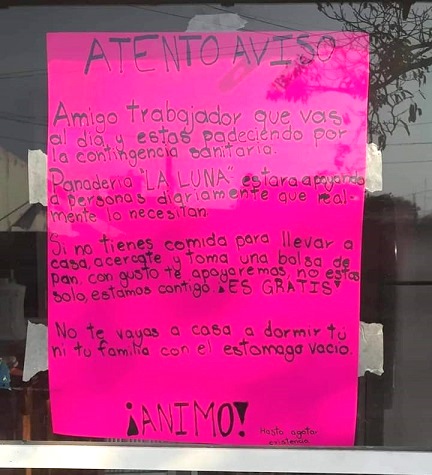 ATENTO AVISO
Amigo trabajador que vas
al dia y estas padeciendo por
la contingencia sanitaria.
Panaderia "LA LUNA" estara apoyando
a personas diariamente que real-
mente lo necesitan
Si no tienes comida para llevar a
casa, acercate y toma una bolsa de
pan, con gusto te apoyaremos, no estas
solo, estamos contigo. ¡ES GRATIS!
No te vayas a casa a dormir tú
ni tu familia con el estomago vacio.
¡ANIMO!
Hasta agotar
existencia